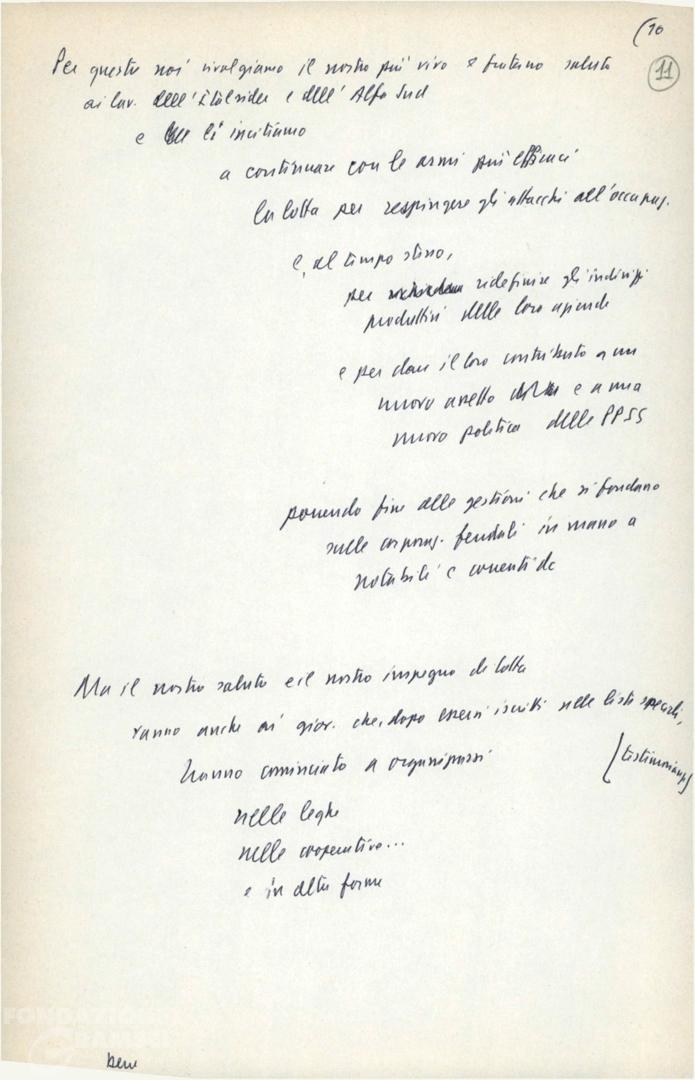 (10
11
Per questo noi rivolgiamo il nostro più vivo e fraterno saluto
ai lav. dell'Italsider e dell'Alfa Sud
e li incitiamo
a continuare con le armi più efficaci
la lotta per respingere gli attacchi all'occupaz.
e, al tempo stesso,
per ridefinire gli indirizzi
produttivi delle loro aziende
e per dare il loro contributo a un
nuovo assetto e a una
nuova politica delle PPSS
ponendo fine alle gestioni che si fondano
sulle feudali in mano a
notabili e correnti dc
Ma il nostro saluto e il nostro impegno di lotta
vanno anche ai giov. che, dopo essersi iscritti nelle liste speciali,
hanno cominciato a organizzarsi
[testimonianze]
nelle leghe
nelle cooperative...
e in altre forme
FONDAZIONE
GRAMSCI